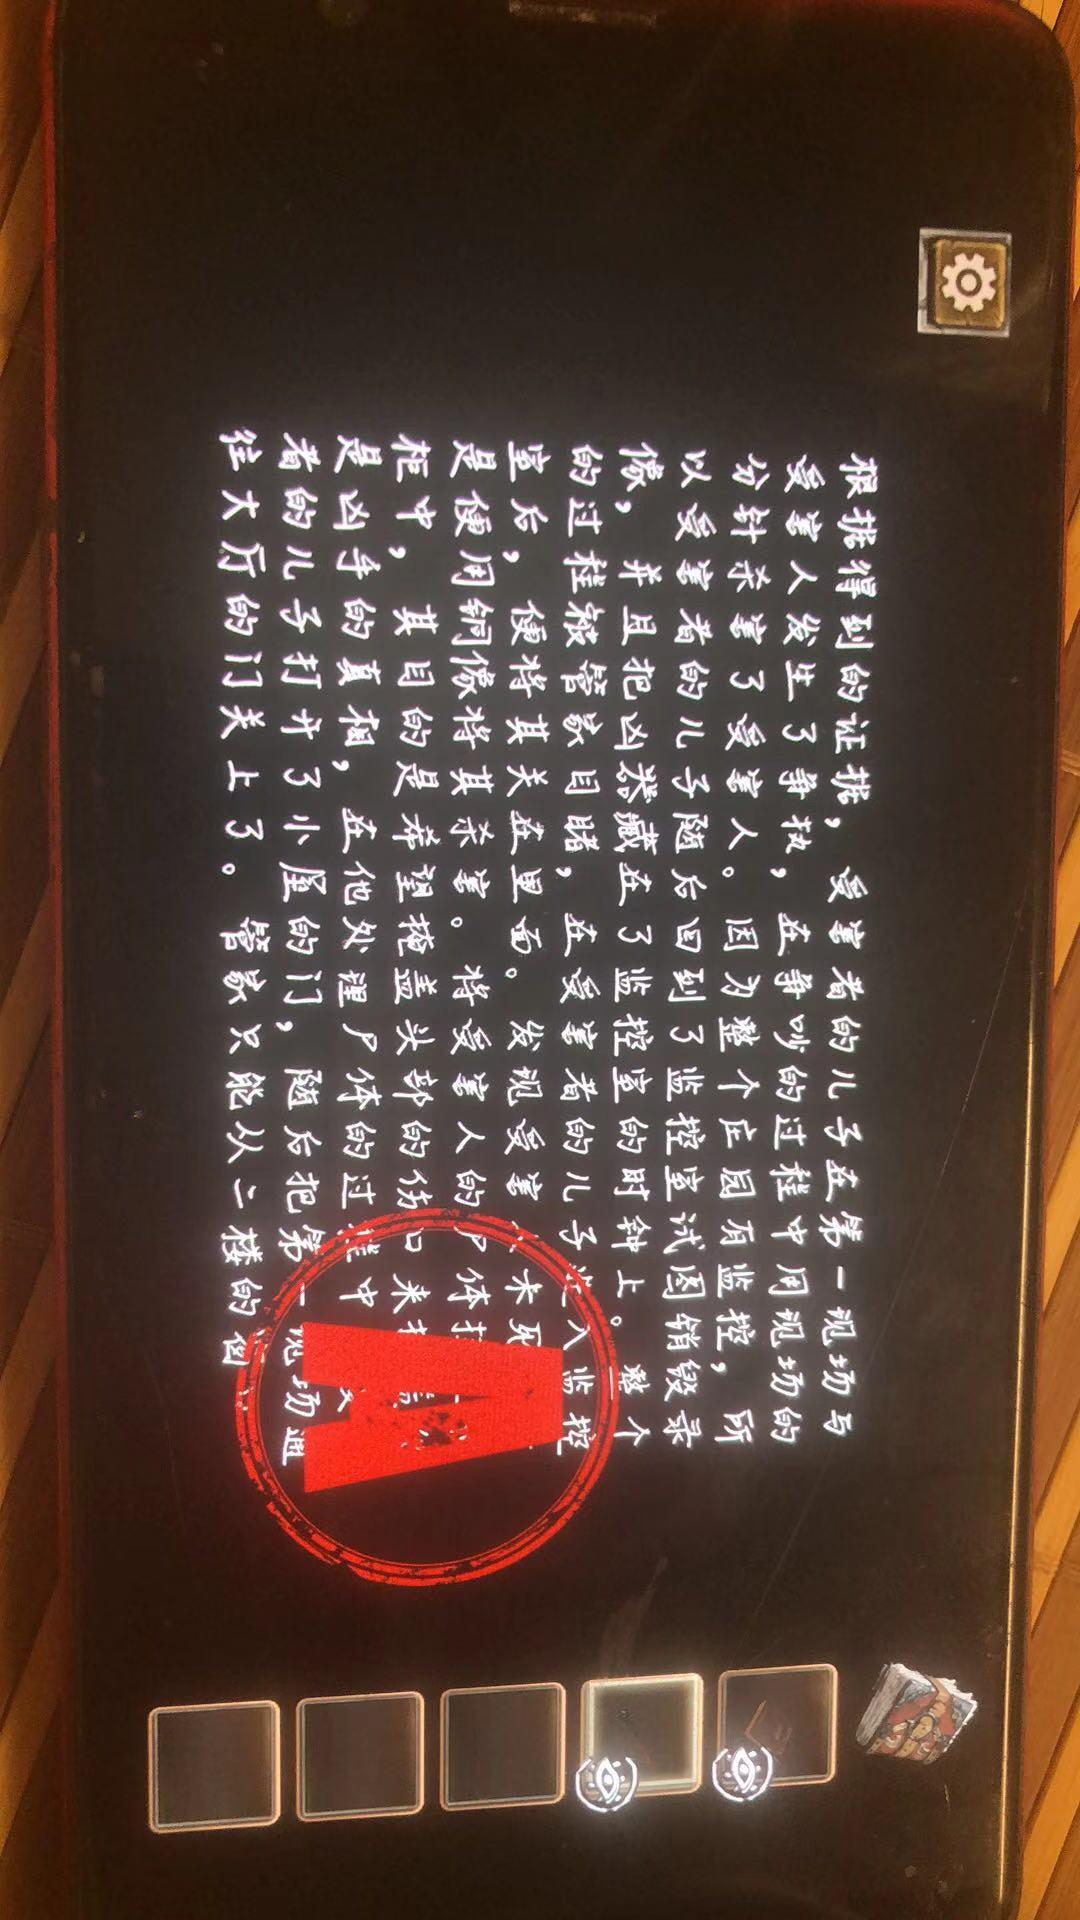 根据得到的证据，受害者的儿子在第一现场与
受害人发生了争执，在争吵的过程中用现场的
分针杀害了受害人。因为整个庄园有监控，所
以受害者的儿子随后回到了监控室试图销毁录
像，并且把凶器藏在了监控室的时钟上。整个
的过程被管家目睹，在受害者的儿子进入监控
室后，便将其关在里面。发现受害人未死
是便用铜像将其杀害。将受害人的尸体
柜中，其目的是希望掩盖头部的伤口来
是凶手的真相，在他处理尸体的过程中
者的儿子打开了小屋的门，随后把第一现场通
往大厅的门关上了。管家只能从二楼的
A